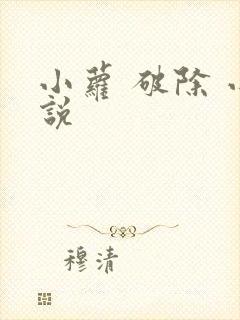 小蘿 破除
說
穆清